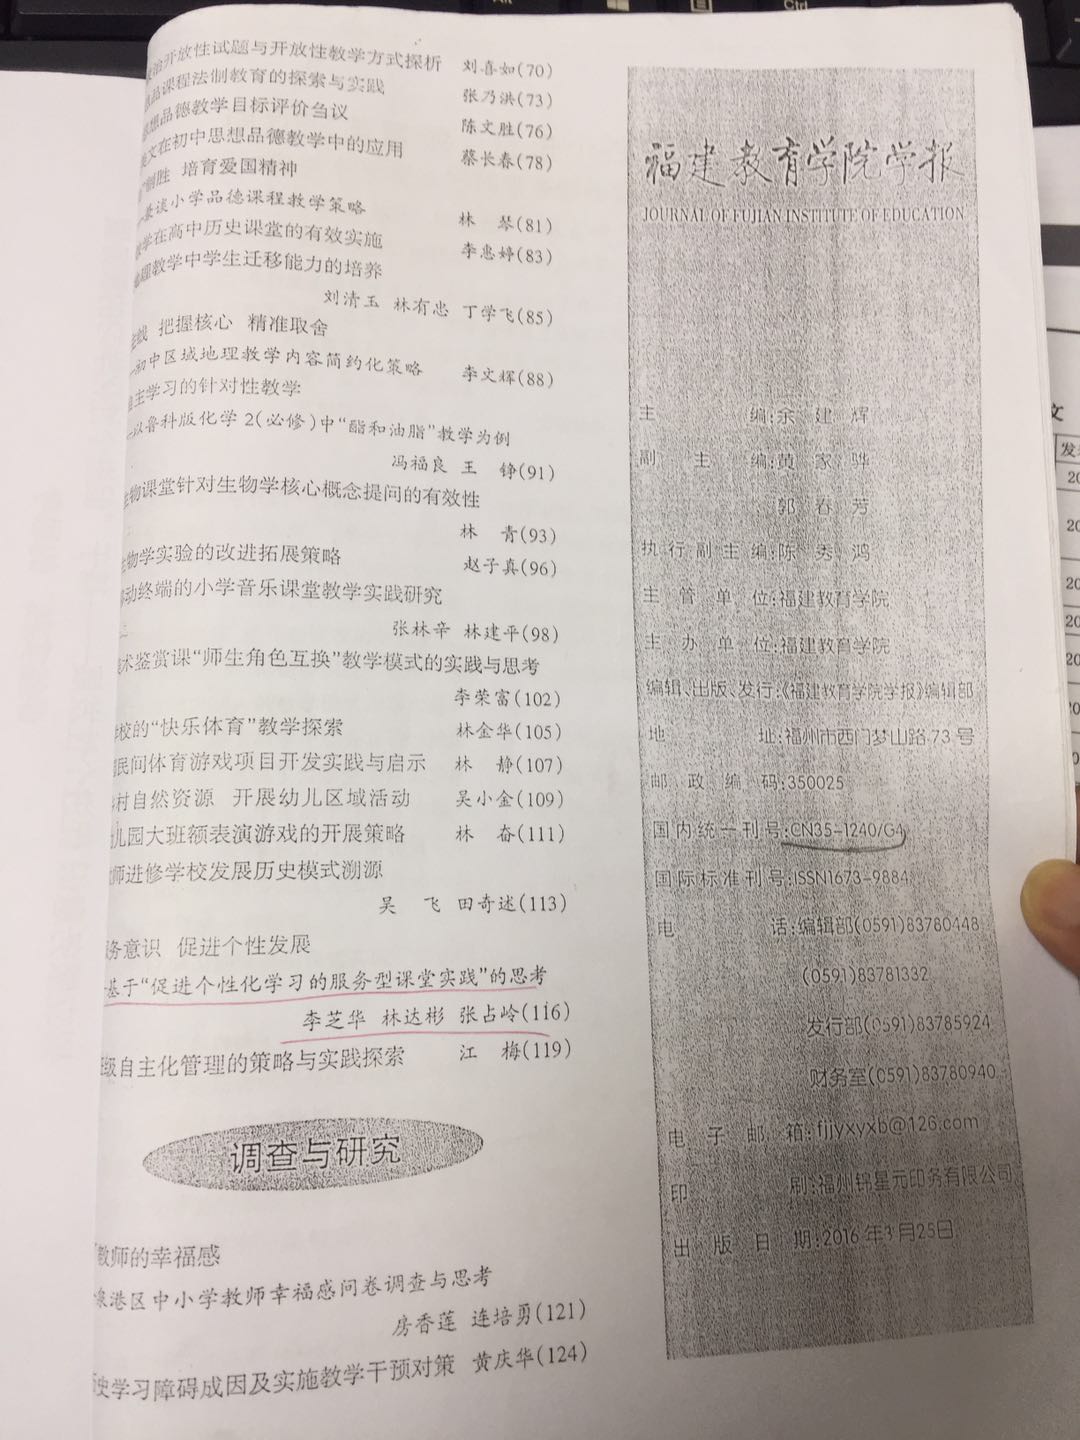 政治开放性试题与开放性教学方式探析 刘喜如(70)
品课程法制教育的探索与实践 张乃洪(73)
思想品德教学目标评价刍议 陈文胜(76)
文在初中思想品德教学中的应用 蔡长春(78)
制胜 培育爱国精神
谈小学品德课程教学策略 林 琴(81)
学在高中历史课堂的有效实施 李惠婷(83)
地理教学中学生迁移能力的培养
刘清玉 林有忠 丁学飞(85)
把握核心 精准取舍
初中区域地理教学内容简约化策略 李文辉(88)
主学习的针对性教学
以鲁科版化学2(必修)中“酯和油脂”教学为例
冯福良 王 铮(91)
生物课堂针对生物学核心概念提问的有效性
林 青(93)
物学实验的改进拓展策略 赵子真(96)
移动终端的小学音乐课堂教学实践研究
张林辛 林建平(98)
美术鉴赏课“师生角色互换”教学模式的实践与思考
李荣富(102)
学校的“快乐体育”教学探索 林金华(105)
民间体育游戏项目开发实践与启示 林 静(107)
乡村自然资源 开展幼儿区域活动 吴小金(109)
幼儿园大班额表演游戏的开展策略 林 奋(111)
教师进修学校发展历史模式溯源
吴 飞 田奇述(113)
服务意识 促进个性发展
基于“促进个性化学习的服务型课堂实践”的思考
李芝华 林达彬 张占岭(116)
班级自主化管理的策略与实践探索 江 梅(119)
调查与研究
教师的幸福感
泉港区中小学教师幸福感问卷调查与思考
房香莲 连培勇(121)
历史学习障碍成因及实施教学干预对策 黄庆华(124)
福建教育学院学报
JOURNAL OF FUJIAN INSTITUTE OF EDUCATION
主 编:余 建 辉
副 主 编:黄 家 骅
郭 春 芳
执行副主编:陈 秀 鸿
主 管 单 位:福建教育学院
主 办 单 位:福建教育学院
编辑、出版、发行:《福建教育学院学报》编辑部
地 址:福州市西门梦山路73号
邮 政 编 码:350025
国内统一刊号:CN35-1240/G4
国际标准刊号:ISSN1673-9884
电 话:编辑部(0591)83780448
(0591)83781332
发行部(0591)83785924
财务室(0591)83780940
电 子 邮 箱:fjjyxyxb@126.com
印 刷:福州锦星元印务有限公司
出 版 日 期:2016年3月25日
文